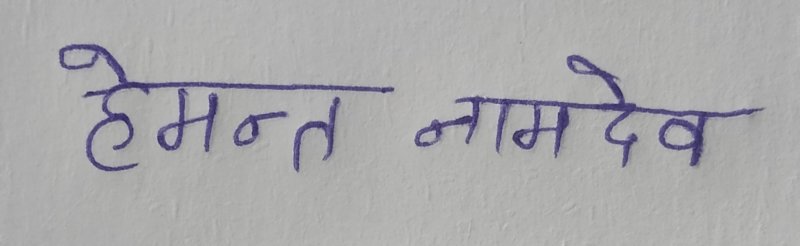 हेमन्त नामदेव